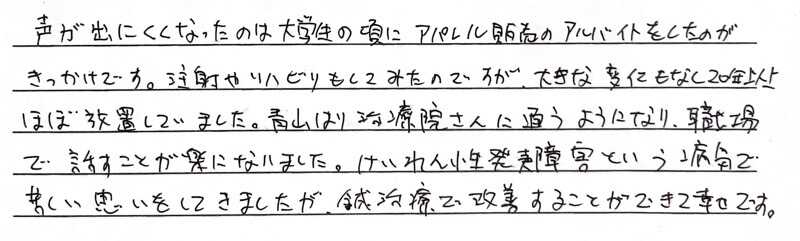 声が出にくくなったのは大学生の頃にアパレル販売のアルバイトをしたのが
きっかけです。注射やリハビリもしてみたのですが、大きな変化もなく20年以上
ほぼ放置していました。青山はり治療院さんに通うようになり、職場
で話すことが楽になりました。けいれん性発声障害という病気で
苦しい思いをしてきましたが、鍼治療で改善することができて幸せです。